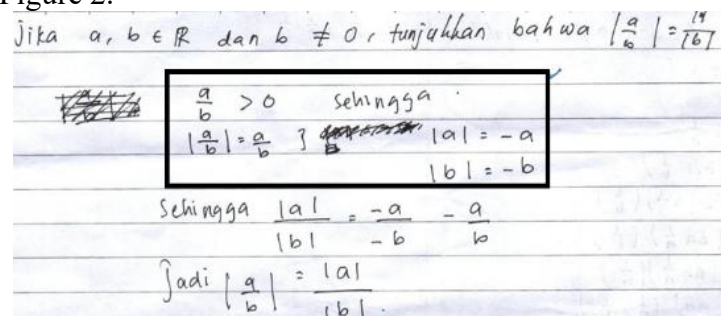 Figure 2.
Jika a, b ∈ ℝ dan b ≠ 0, tunjukkan bahwa |a/b| = |a|/|b|
a/b > 0 sehingga
|a/b| = a/b ; |a| = -a
|b| = -b
Sehingga |a|/|b| = -a/-b - a/b
Jadi |a/b| = |a|/|b|.